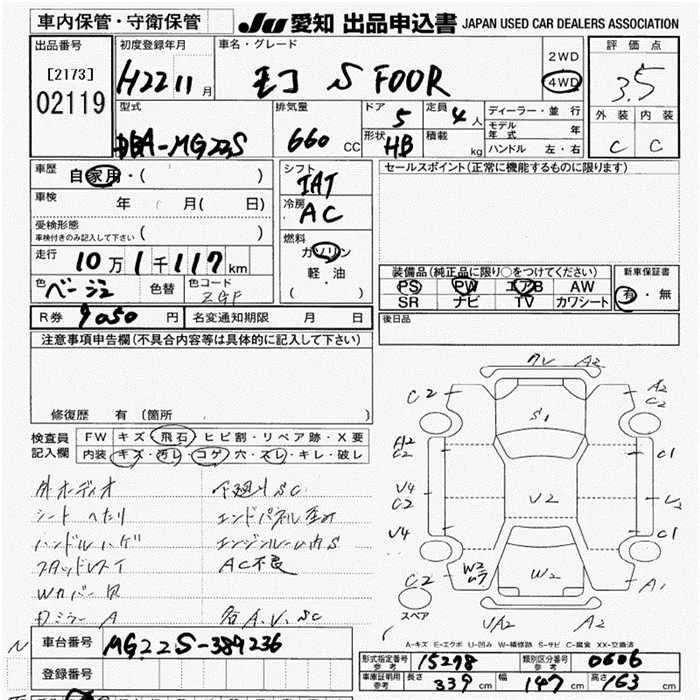 車内保管・守衛保管
JU 愛知 出品申込書 JAPAN USED CAR DEALERS ASSOCIATION
出品番号
[2173]
02119
初度登録年月
H22 11月
車名・グレード
モコ S FOUR
2WD
4WD
評価点
3.5
外装 内装
C C
型式
DBA-MG22S
排気量
660 CC
ドア 5
形状 HB
定員 4人
積載 kg
ディーラー・並行
モデル年式 年
ハンドル 左・右
車歴
自家用・( )
車検 年 月( 日)
受検形態
車検付きのみ記入して下さい ( )
走行
10万1千117km
色 ベージュ 色替
色コード
ZGF
シフト
IAT
冷房
AC
燃料
ガソリン
軽・油
( )
セールスポイント(正常に機能するものに限ります)
装備品(純正品に限り○をつけてください)
PS PW エアB AW
SR ナビ TV カワシート
新車保証書
有・無
R券 9050円 名変通知期限 月 日
後日品
注意事項申告欄(不具合内容等は具体的に記入して下さい)
修復歴 有 〔箇所 〕
検査員
記入欄
FW キズ・飛石・ヒビ割・リペア跡・X要
内装 キズ・汚レ・コゲ・穴・スレ・キレ・破レ
外オーディオ
シートヘたり
ハンドルハゲ
スタッドレスT
Wカバー欠
Dミラー A
下廻りSC
エンドパネル歪み
エンジンルーム内S
AC不良
各A.V.SC
クレ A2
C2
A2
C2
S1
A2
C2
C1
V4
C2
V2
V4
C1
C2
W2
W2
A1
スペア
VA2
A2
A-キズ E-エクボ U-凹み W-補修跡 S-サビ C-腐食 XX-交換済
N
車台番号 MG22S-389236
登録番号
型式指定番号
参考
15278
類別区分番号
参考
0606
車庫証明用
参考
長さ 339cm 幅 147cm 高さ 163cm